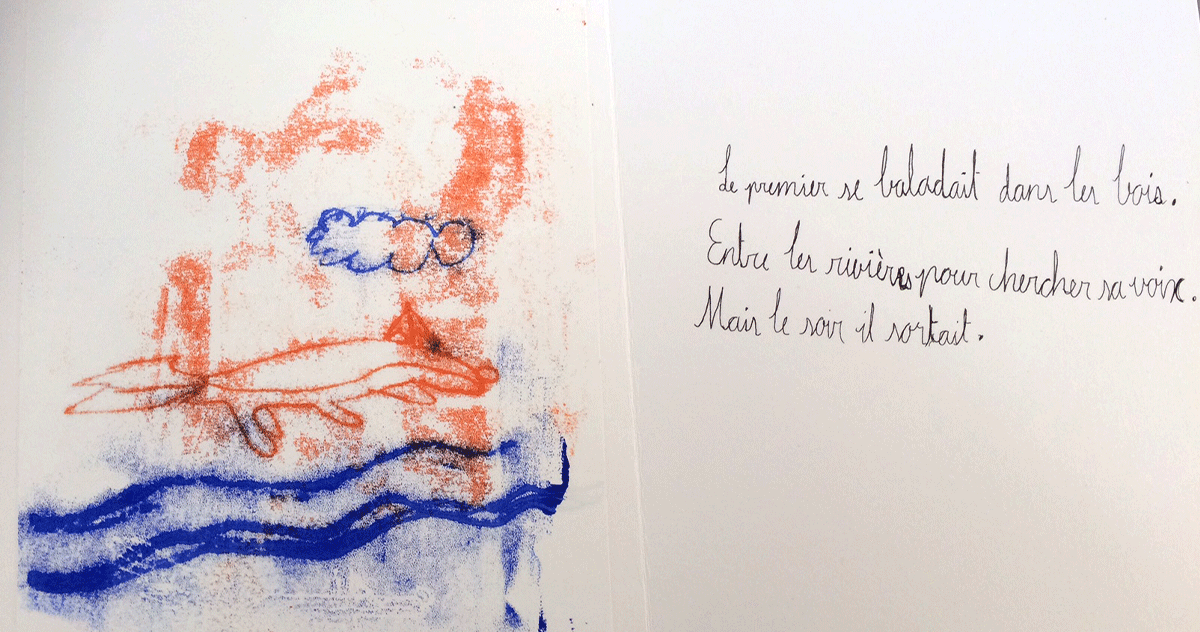 Le premier se baladait dans les bois.
Entre les rivières pour chercher sa voix.
Mais le soir il sortait.